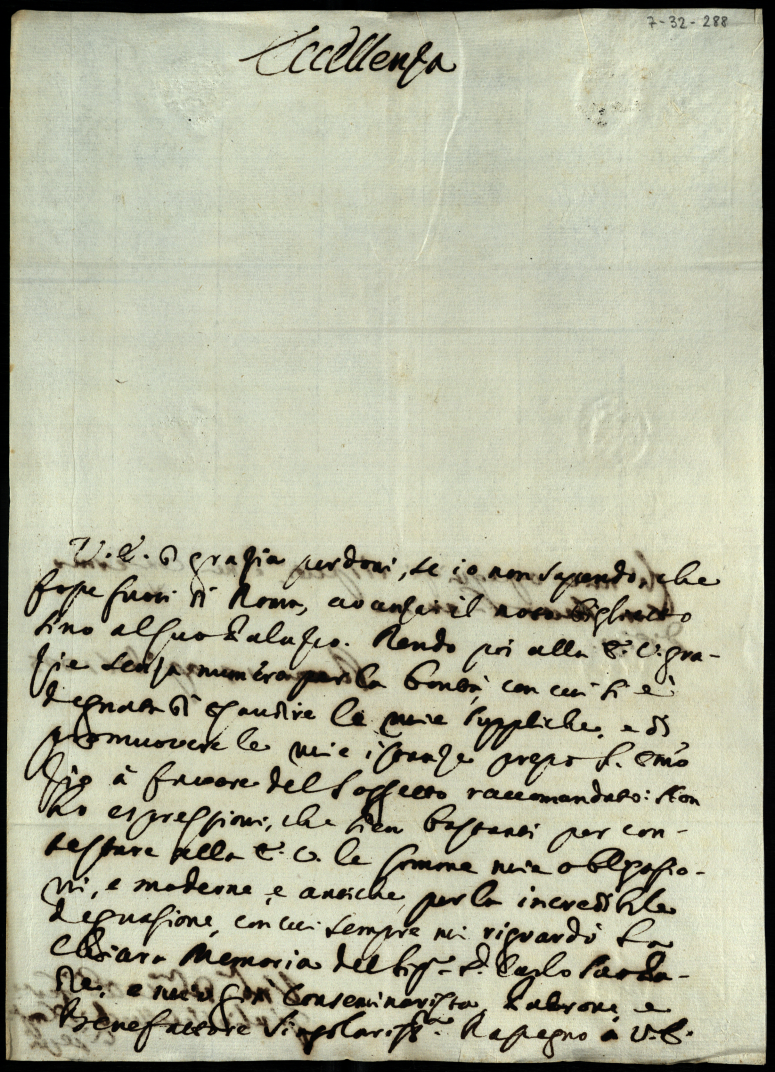 7-32-288
Eccellenza
V. E. di grazia perdoni, se io non sapendo, che
fosse fuori di Roma, avanzai il noto biglietto
sino al suo Palazzo. Rendo poi alla E. V. gra-
zie senza numero per la bontà, con cui si è
degnata di esaudire le mie suppliche, e di
promuovere le mie istanze presso S. Emo
Zio à favore del soggetto raccomandato: Non
ho espressioni, che sien bastanti per con-
testare alla E. V. le somme mie obligazio-
ni, e moderne, e antiche, per la incredibile
degnazione, con cui sempre mi riguardò la
Chiara Memoria del Sigr. D. Carlo Padre, e mio già Conseminarista, Padrone, e
Benefattore Singolariss. Rassegno à V. E.